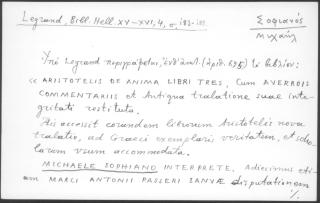 Legrand, Bibl. Hell. XV-XVI, 4, σ. 183-
Σοφιανός
Μιχαήλ
Υπό Legrand περιγράφεται, (ἀριθ. 695) τό βιβλίον:
« ARISTOTELIS DE ANIMA LIBRI TRES, Cum AVERROIS
COMMENTARIIS et Antiqua tralatione suae inte-
gritati restituta.
His accessit eorundem librorum Aristotelis nova
tralatio, ad Graeci exemplaris veritatem, et scho-
larum usum accommodata.
MICHAELE SOPHIANO INTERPRETE, Adiecimus eti-
am MARCI ANTONII PASSERI IANUAE disputationem